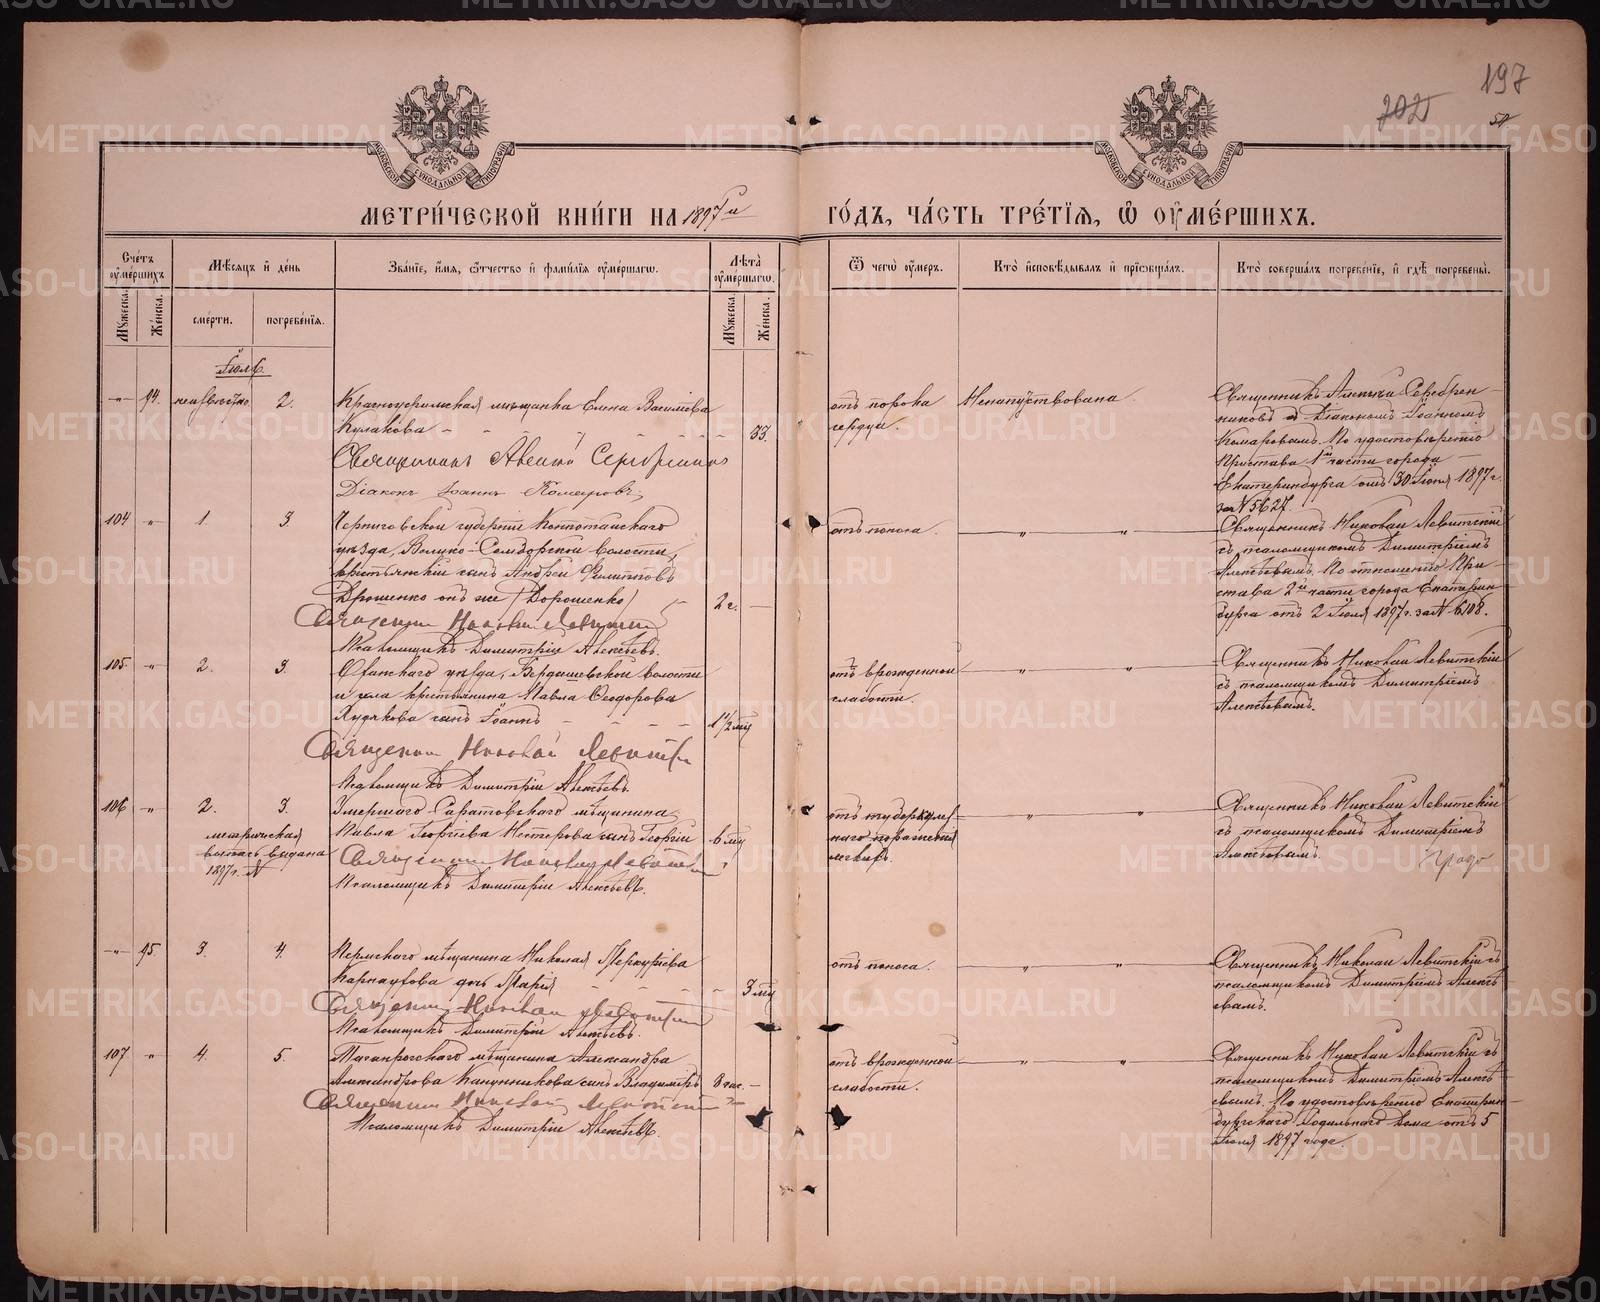 197
202
МЕТРИ́ЧЕСКОЙ КНИ́ГИ НА 1897й ГО́ДЪ, ЧА́СТЬ ТРЕ́ТІѦ, Ѽ ОУ҆МЕ́РШИХЪ.
Сче́тъ оу҆ме́ршихъ
Мѣ́сѧцъ и҆ де́нь
Зва́нїе, и҆́мѧ, ѻ҆́тчество и҆ фамилїѧ оу҆ме́ршагѡ.
Лѣ́та оу҆ме́ршагѡ.
Ѿ чегѡ̀ оу҆́меръ.
Кто̀ и҆сповѣ́дывалъ и҆ прїѡбща́лъ.
Кто̀ соверша́лъ погребе́нїе, и҆ гдѣ̀ погребены̀.
Мꙋ́жеска.
Же́нска.
сме́рти.
погребе́нїѧ.
Мꙋ́жеска.
Же́нска.
Іюль
-"- 94. неизвѣстно 2. Красноуфимская мѣщанка Елена Василіева
Кулакова 33.
Священникъ Алексій Серебренников
Діаконъ Іоаннъ Комаровъ
отъ порока
сердца.
Ненапутствована
Священникъ Алексій Серебрен-
никовъ с Діакономъ Іоанномъ
Комаровымъ. По удостовѣренію
Пристава 1й части города
Екатеринбурга отъ 30 Іюня 1897 г.
за № 5627.
104 " 1. 3. Черниговской губерніи Конотопскаго
уѣзда, Велико-Самборской волости,
крестьянскій сынъ Андрей Филипповъ
Дрошенко онъ же (Дорошенко) 2 г. —
Священник Николай Левитский
Псаломщикъ Димитрій Алексѣевъ.
отъ поноса. — " — " —
Священникъ Николай Левитскій
съ псаломщикомъ Димитріемъ
Алексѣевымъ. По отношенію При-
става 2й части города Екатерин-
бурга отъ 2 Іюля 1897 г. за № 6108.
105. " 2. 3. Оханскаго уѣзда, Бердышевской волости
и села крестьянина Павла Ѳеодорова
Худякова сынъ Іоаннъ 1 1/2 мѣс
Священник Николай Левитск
Псаломщикъ Димитрій Алексѣевъ.
отъ врожденной
слабости. — " — " —
Священникъ Николай Левитскій
съ псаломщикомъ Димитріемъ
Алексѣевымъ.
106 " 2. 3. Умершаго Саратовскаго мѣщанина
Павла Георгіева Нестерова сынъ Георгій 6 мѣс
Священник Николай Левитский
Псаломщикъ Димитрій Алексѣевъ.
метрическая
выпись выдана
1897 г. №
отъ туберкулез-
наго пораженія
— " — " —
Священникъ Николай Левитскій
съ псаломщикомъ Димитріемъ
Алексѣевымъ.
-"- 95 3. 4. Пермскаго мѣщанина Николая Меркуріева
Карнаухова дочь Марія 3 мѣс
Священник Николай Левитский
Псаломщикъ Димитрій Алексѣевъ.
отъ поноса. — " — " —
Священникъ Николай Левитскій съ
псаломщикомъ Димитріемъ Алексѣ-
евымъ.
107 " 4. 5. Таганрогскаго мѣщанина Александра
Александрова Канунникова сынъ Владиміръ 8 час. —
Священник Николай Левитский
Псаломщикъ Димитрій Алексѣевъ.
отъ врожденной
слабости. — " — " —
Священникъ Николай Левитскій съ
псаломщикомъ Димитріемъ Алексѣ-
евымъ. По удостовѣренію Екатерин-
бургскаго Родильнаго Дома отъ 5
Іюля 1897 года.
METRIKI.GASO-URAL.RU